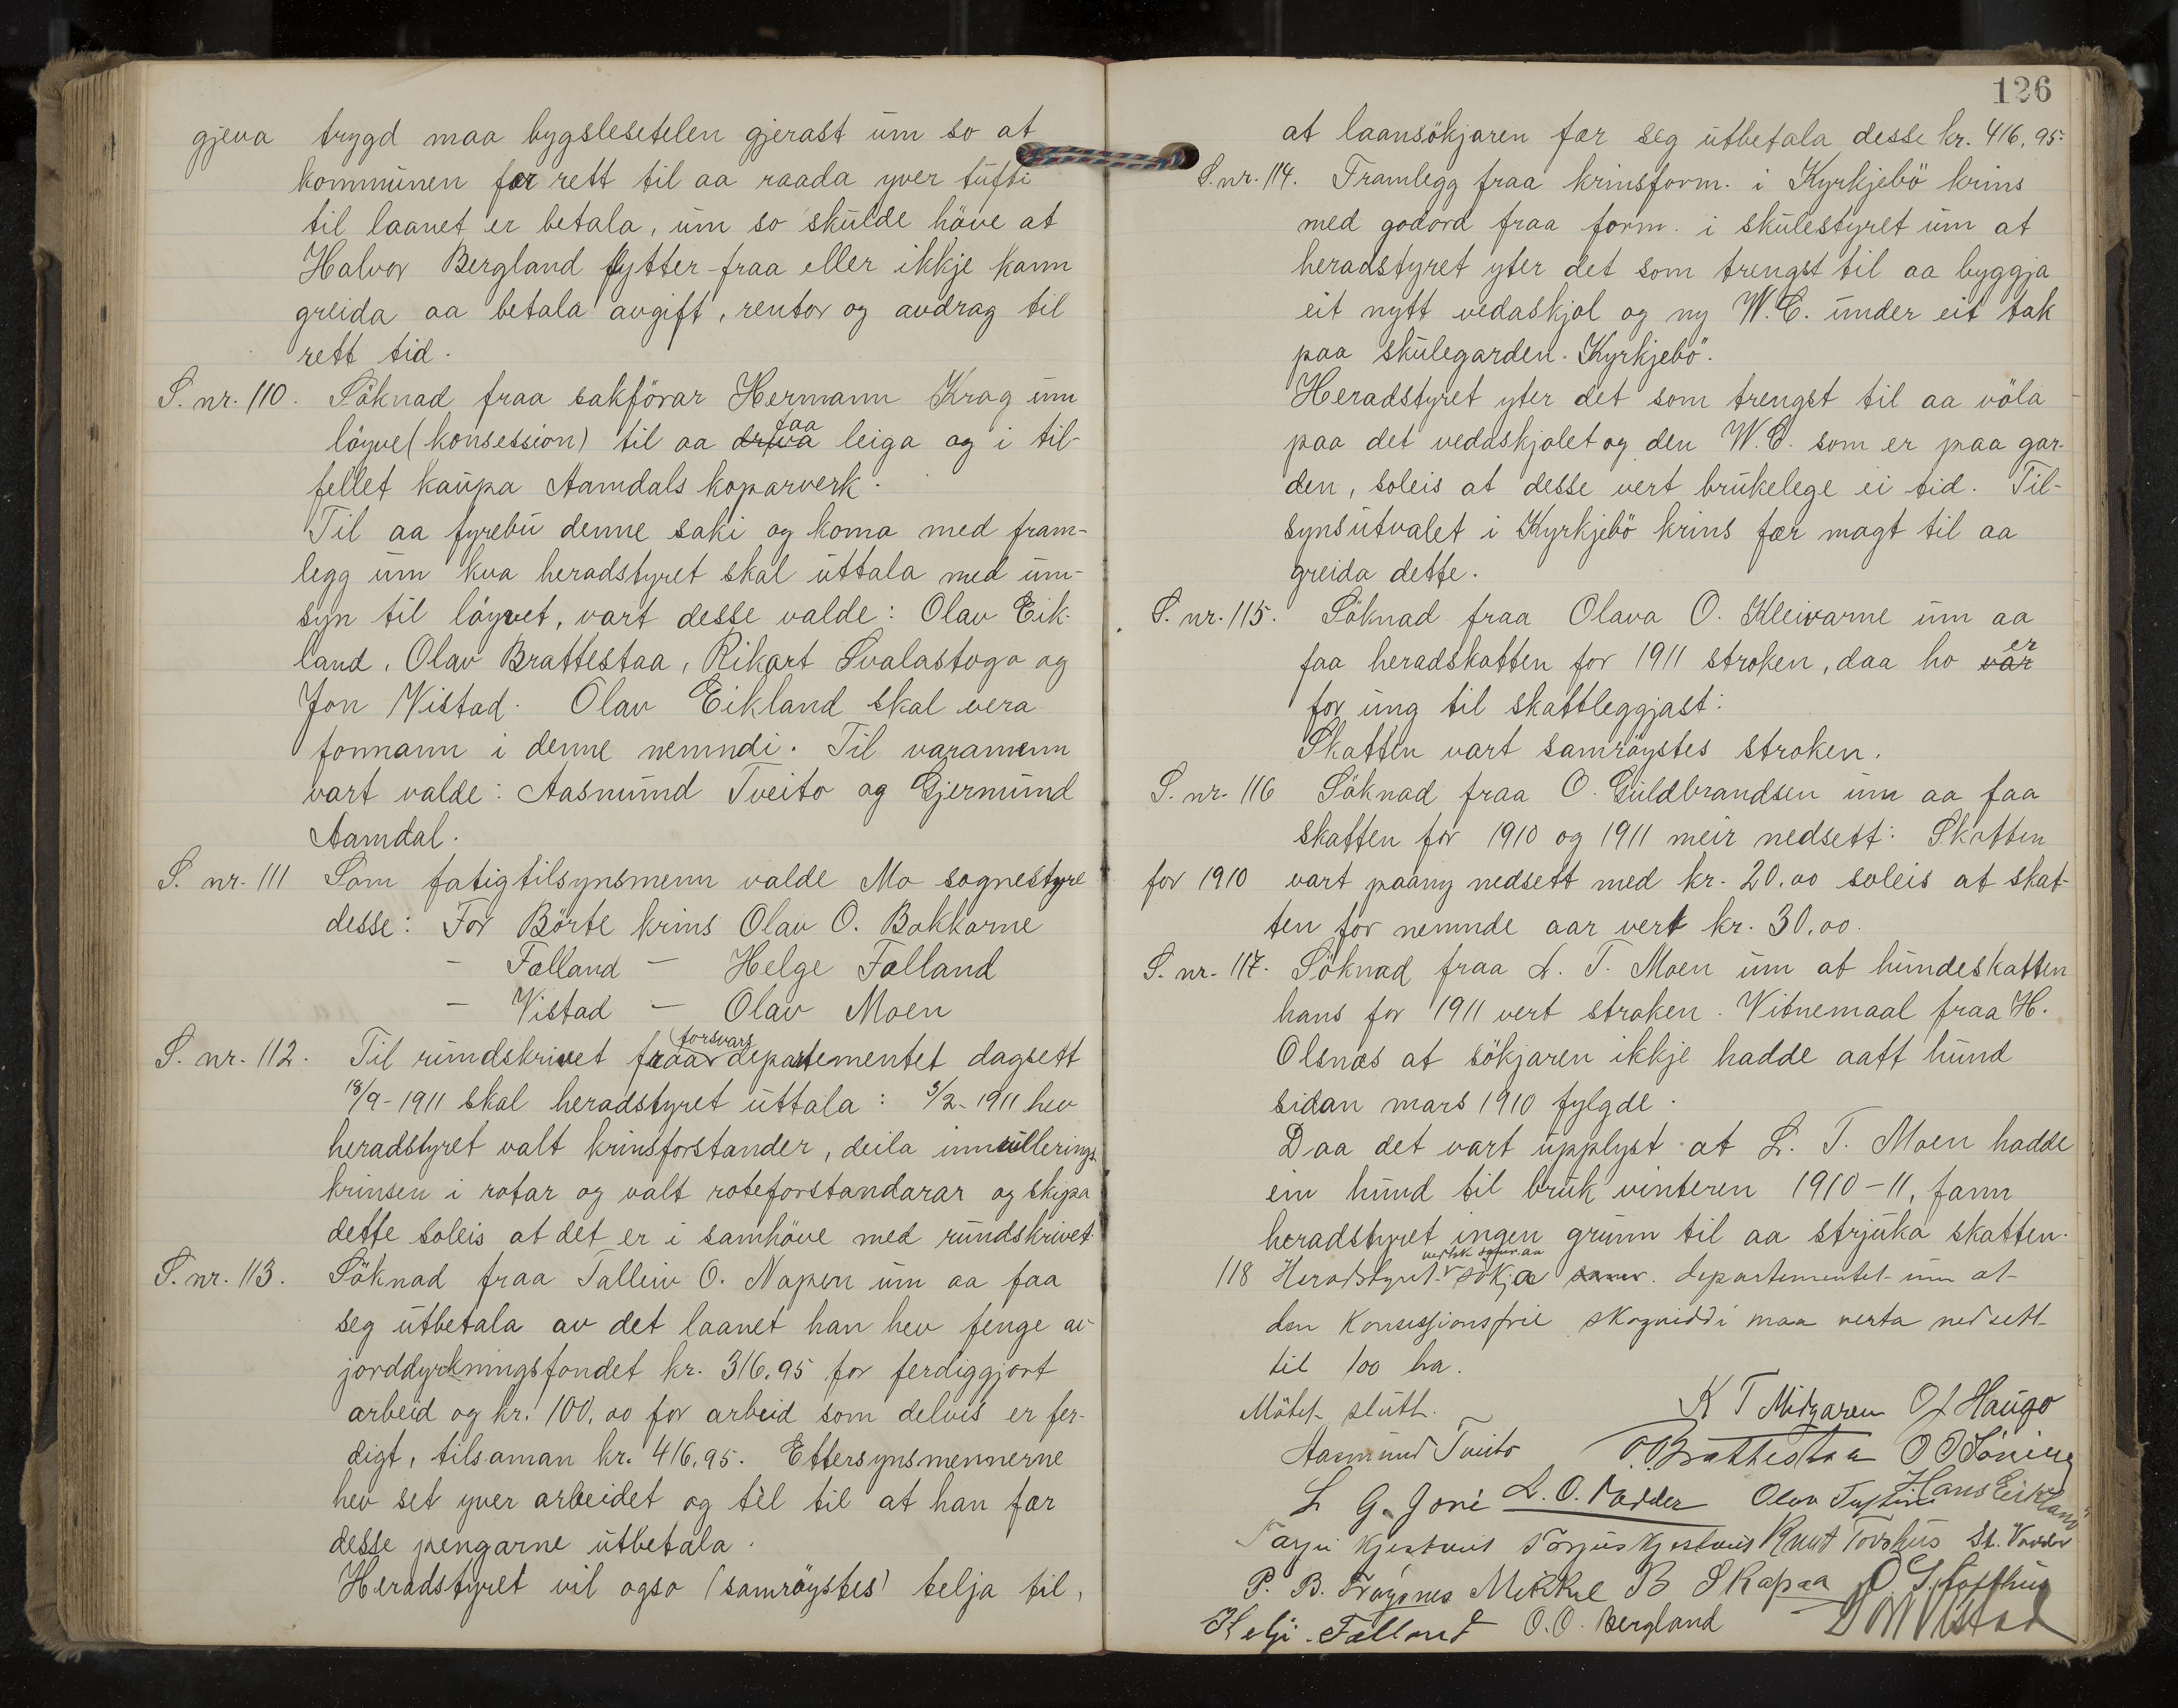 gjeva trygd maa bygslesetelen gjerast um so at
kommunen fær rett til aa raada yver tufti
til laanet er betala, um so skulde höve at
Halvor Bergland flytter fraa eller ikkje kann
greida aa betala avgift, rentor og avdrag til
rett tid.
S. nr. 110. Söknad fraa sakförar Hermann Krag um
löyve (konsession) til aa driva faa leiga og i til-
fellet kaupa Aamdals koparverk.
Til aa fyrebu denne saki og koma med fram-
legg um kva heradstyret skal uttala med um-
syn til löyvet, vart desse valde: Olav Eik-
land, Olav Brattestaa, Rikart Svalastoga og
Jon Vistad. Olav Eikland skal vera
formann i denne nemndi. Til varamenn
vart valde: Aasmund Tveito og Gjermund
Aamdal.
S. nr. 111 Som fatigtilsynsmenn valde Mo sognestyre
desse: For Börte krins Olav O. Bakkarne
- Falland - Helge Falland
- Vistad - Olav Moen
S. nr. 112. Til rundskrivet fraa forsvars departementet dagsett
18/9-1911 skal heradstyret uttala: 3/2-1911 hev
heradstyret valt krinsforstander, deila innrullerings
krinsen i rotar og valt roteforstandarar og skipa
dette soleis at det er i samhöve med rundskrivet.
S. nr. 113. Söknad fraa Talleiv O. Napen um aa faa
seg utbetala av det laanet han hev fenge av
jorddyrkningsfondet kr. 316,95 for ferdiggjort
arbeid og kr. 100,00 for arbeid som delvis er fer-
digt, tilsaman kr. 416,95. Ettersynsmennerne
hev set yver arbeidet og tèl til at han fær
desse pengarne utbetala.
Heradstyret vil ogso (samröystes) telja til,
126
at laansökjaren fær seg utbetala desse kr. 416,95.
S. nr. 114. Framlegg fraa krinsform. i Kyrkjebö krins
med godord fraa form. i skulestyret um at
heradstyret yter det som trengst til aa byggja
eit nytt vedaskjol og ny W.C. under eit tak
paa skulegarden "Kyrkjebö".
Heradstyret yter det som trengst til aa völa
paa det vedaskjolet og den W.C. som er paa gar-
den, soleis at desse vert brukelege ei tid. Til-
synsutvalet i Kyrkjebö krins fær magt til aa
greida dette.
S. nr. 115. Söknad fraa Olava O. Kleivarne um aa
faa heradskatten for 1911 stroken, daa ho var er
for ung til skattleggjast:
Skatten vart samröystes stroken.
S. nr. 116 Söknad fraa O. Guldbrandsen um aa faa
skatten for 1910 og 1911 meir nedsett: Skatten
for 1910 vart paany nedsett med kr. 20,00 soleis at skat-
ten for nemnde aar vert kr. 30,00.
S. nr. 117. Söknad fraa L. T. Moen um at hundeskatten
hans for 1911 vert stroken. Vitnemaal fraa H.
Olsnæs at sökjaren ikkje hadde aatt hund
sidan mars 1910 fylgde.
Daa det vart upplyst at L. T. Moen hadde
ein hund til bruk vinteren 1910-11, fann
heradstyret ingen grunn til aa strjuka skatten.
118 Heradstyret vedtek samr. aa sökja samr. departementet um at
den konsessionsfrie skogviddi maa verta nedsett
til 100 ha.
Mötet slutt.
K T Midgaren O J Haugo
Aasmund Tveito O. Brattestaa O O Löning
L G. Joni L. O. Vadder Olav Tuftin Hans Eikland
Tarjei Kjestveit Torjus Kjestveit Knut Tovshus St. Vadder
P. B. Fröysnes Mikkel B Skapaa O. G. Lofthus
Helje Falland O. O. Bergland J M Vistad